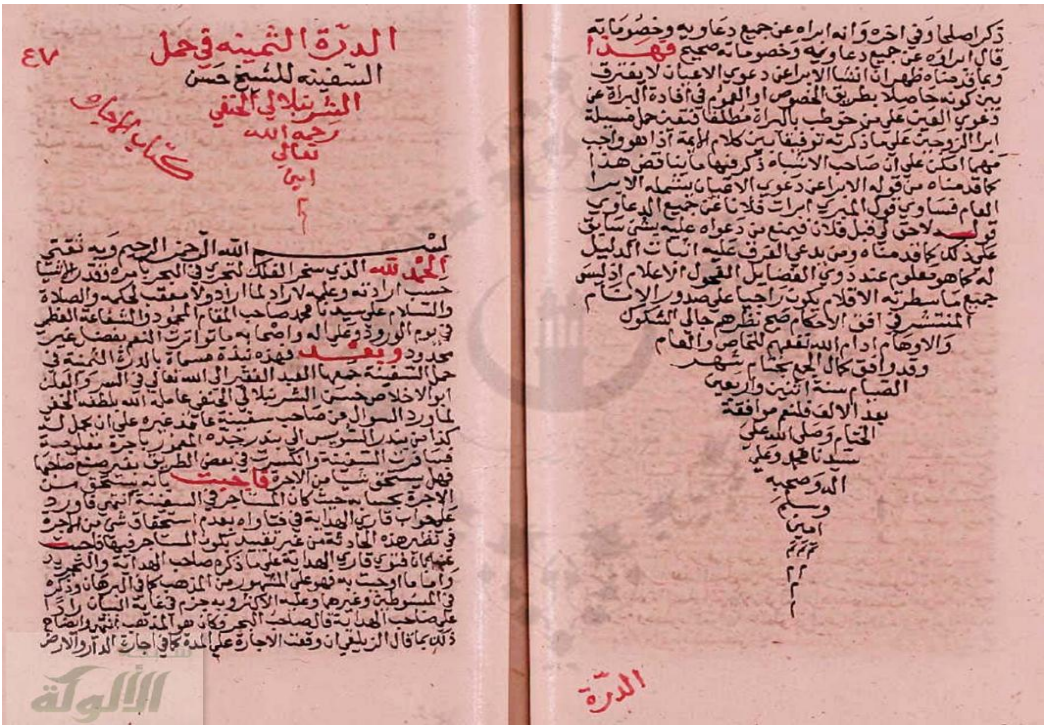 ذكر اصلحا وفي اخره وانه ابراه عن جميع دعاويه وخصوماته
قال ابراؤه عن جميع دعاويه وخصوماته صحيح فهذا
وبما قدمناه ظهر ان انشا الابرا عن دعوي الاعيان لا يفترق
بين كونه حاصلا بطريق الخصوص او العموم في افادة البراة عن
دعوي العين علي من خوطب بالبراة مطلقا فتعين حمل مسئلة
ابرا الزوجين علي ما ذكرته توفيقا بين كلام الايمة اذا هو واجب
مهما امكن علي ان صاحب الاشباه ذكر فيها ما يناقض هذا
كما قدمناه من قوله الابرا عن دعوي الاعيان يشمله الابرا
العام فساوي قول المبري ابرات فلانا عن جميع الدعاوي
قوله لاحق لي قبل فلان فيمنع من دعواه عليه بشي سابق
علي ذلك كما قدمناه ومن يدعي الفرق عليه اثبات الدليل
له كما هو معلوم عند ذوي الفضايل الفحول الاعلام اذ ليس
جميع ما سطرته الاقلام يكون راجيا علي صدور الانام
المنتشر في افق الاحكام صح نظرهم جالي الشكوك
والاوهام ادام الله نفعهم للخاص والعام
وقد وافق كمال الجمع بختام شهر
الصيام سنة اثنين واربعين
بعد الالف فلنعم موافقة
الختام وصلي الله علي
سيدنا محمد وعلي
اله وصحبه
وسلم
امين
الدرة
٤٧
الدرة الثمينه في حمل
السفينه للشيخ حسن
الشرنبلالي الحنفي
رحمه الله
تعالي
امين
كتاب الاجارة
بسم الله الرحمن الرحيم وبه ثقتي
الحمد لله الذي سخر الفلك لتجري في البحر بامره وقدر الاشيا
حسب ارادته وعلمه لا راد لما اراد ولا معقب لحكمه والصلاة
والسلام علي سيدنا محمد صاحب المقام المحمود والشفاعة العظمي
في يوم الورود وعلي اله واصحابه ما تواترت النعم بفضل غير
محدود وبعد فهذه نبذة مسماة بالدرة الثمينة في
حمل السفينة جمعها العبد الفقير الي الله تعالي في السر والعلن
ابو الاخلاص حسن الشرنبلالي الحنفي عامله الله بلطفه الخفي
لما ورد السوال عن صاحب سفينة عاقد غيره علي ان يحمل له
كذا من بندر السويس الي بندر جده المعمور باجرة معلومة
فسافرت السفينة وانكسرت في بعض الطريق بغير صنع صاحبها
فهل يستحق شيا من الاجرة فاجبت بانه يستحق من
الاجرة بحسابه حيث كان المستاجر في السفينة انتهي فاورد
علي جواب قاري الهداية في فتاواه بعدم استحقاق شي من الاجرة
في نظير هذه الحادثة من غير تقييد بكون المستاجر فيها فاجبت
عنه بان فتوي قاري الهداية علي ما ذكره صاحب الهداية والتجريد
واما ما اجبت به فهو علي المشهور من المذهب كما في البرهان وذكره
في المبسوطين وغيرها وعليه الاكثر وبه جزم في غاية البيان رادا
علي صاحب الهداية قال صاحب البحر وكان هو المذهب انتهي وايضاح
ذلك بما قال الزيلعي ان وقعت الاجارة علي المدة كما في اجارة الدار والارض
الألوكة